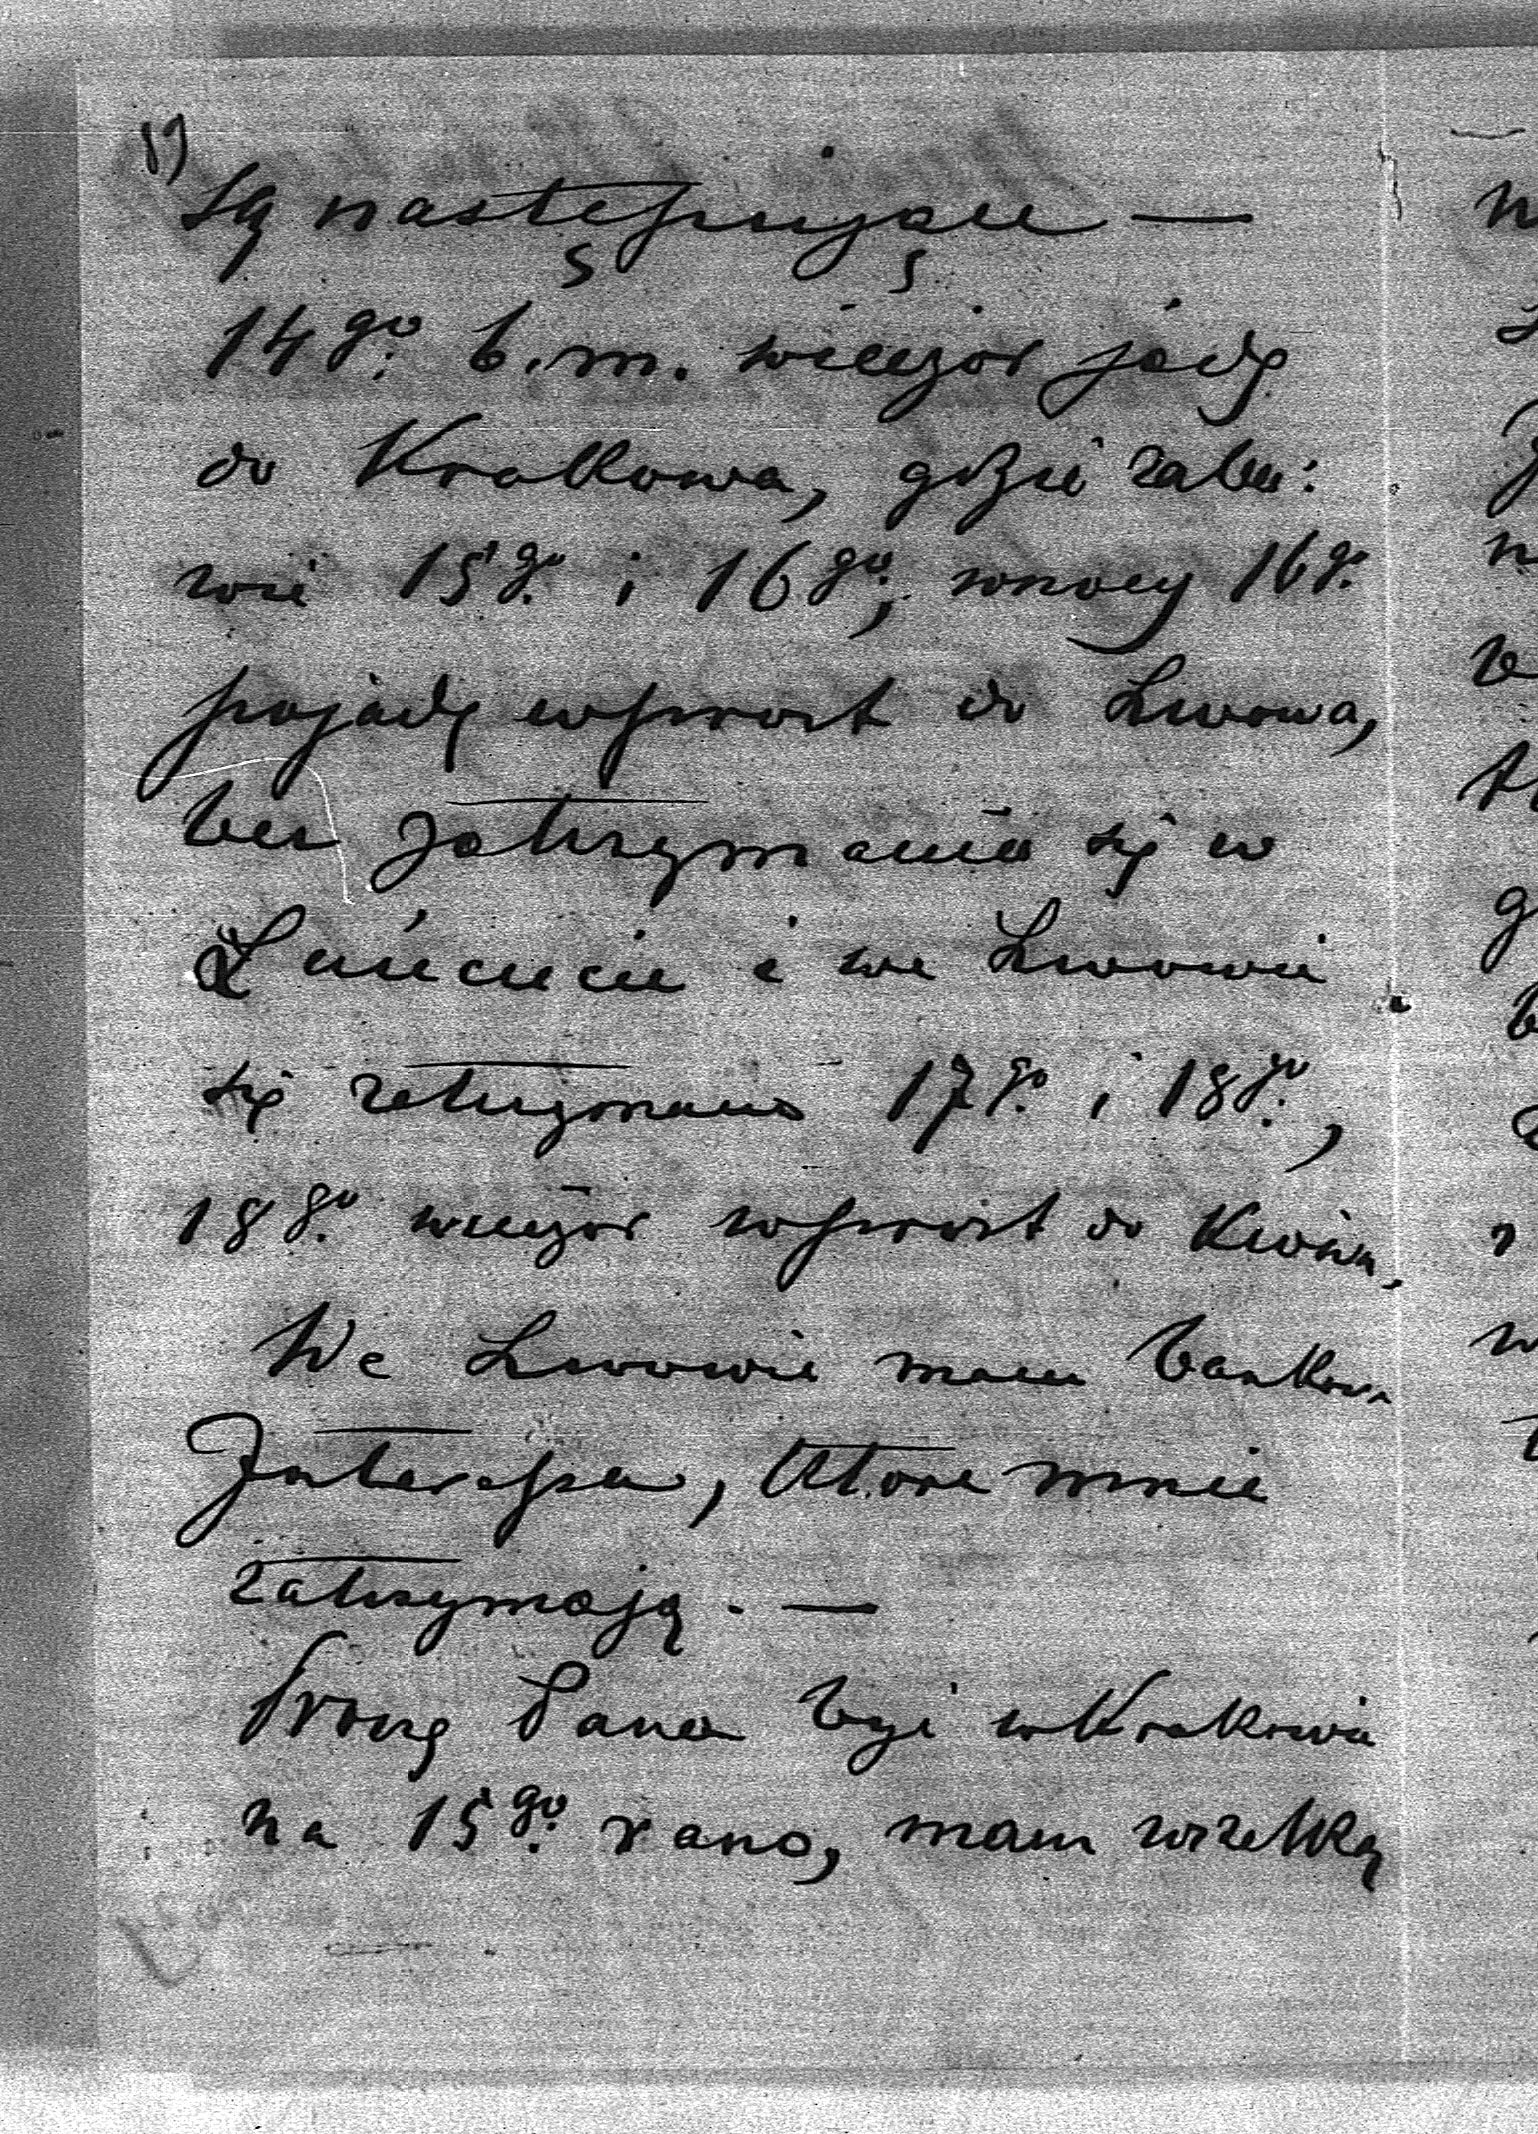 są następujące —
14go. b.m. wieczór jadę
do Krakowa, gdzie zaba:
wie 15go. i 16go; w nocy 16go.
pojadę wprost do Lwowa,
bez zatrzymania się w
Łańcucie i we Lwowie
się zatrzymam 17go. i 18go.,
18go. wieczór wprost do Kijowa.
We Lwowie mam bankowe
Interesa, które mnie
zatrzymają. —
Proszę Pana być w Krakowie
na 15go. rano, mam wszelką